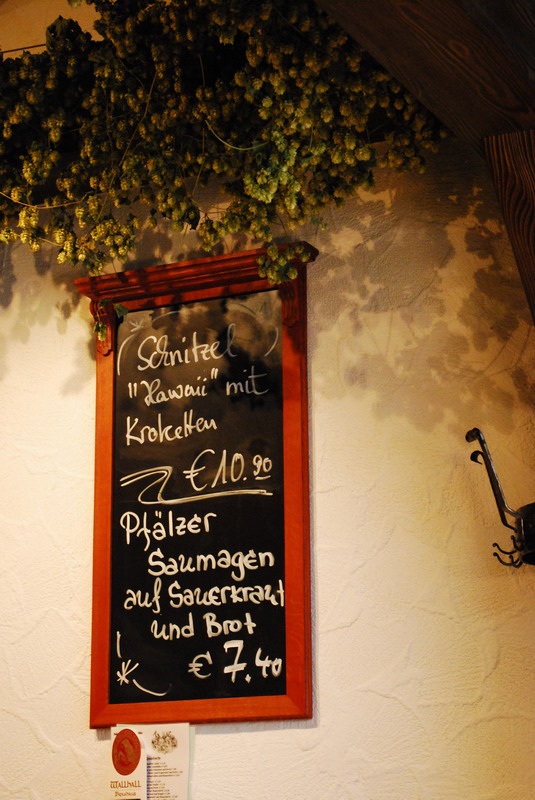 Schnitzel
"Hawaii" mit
Kroketten
€10.90
Pfälzer
Saumagen
auf Sauerkraut
und Brot
€ 7.40